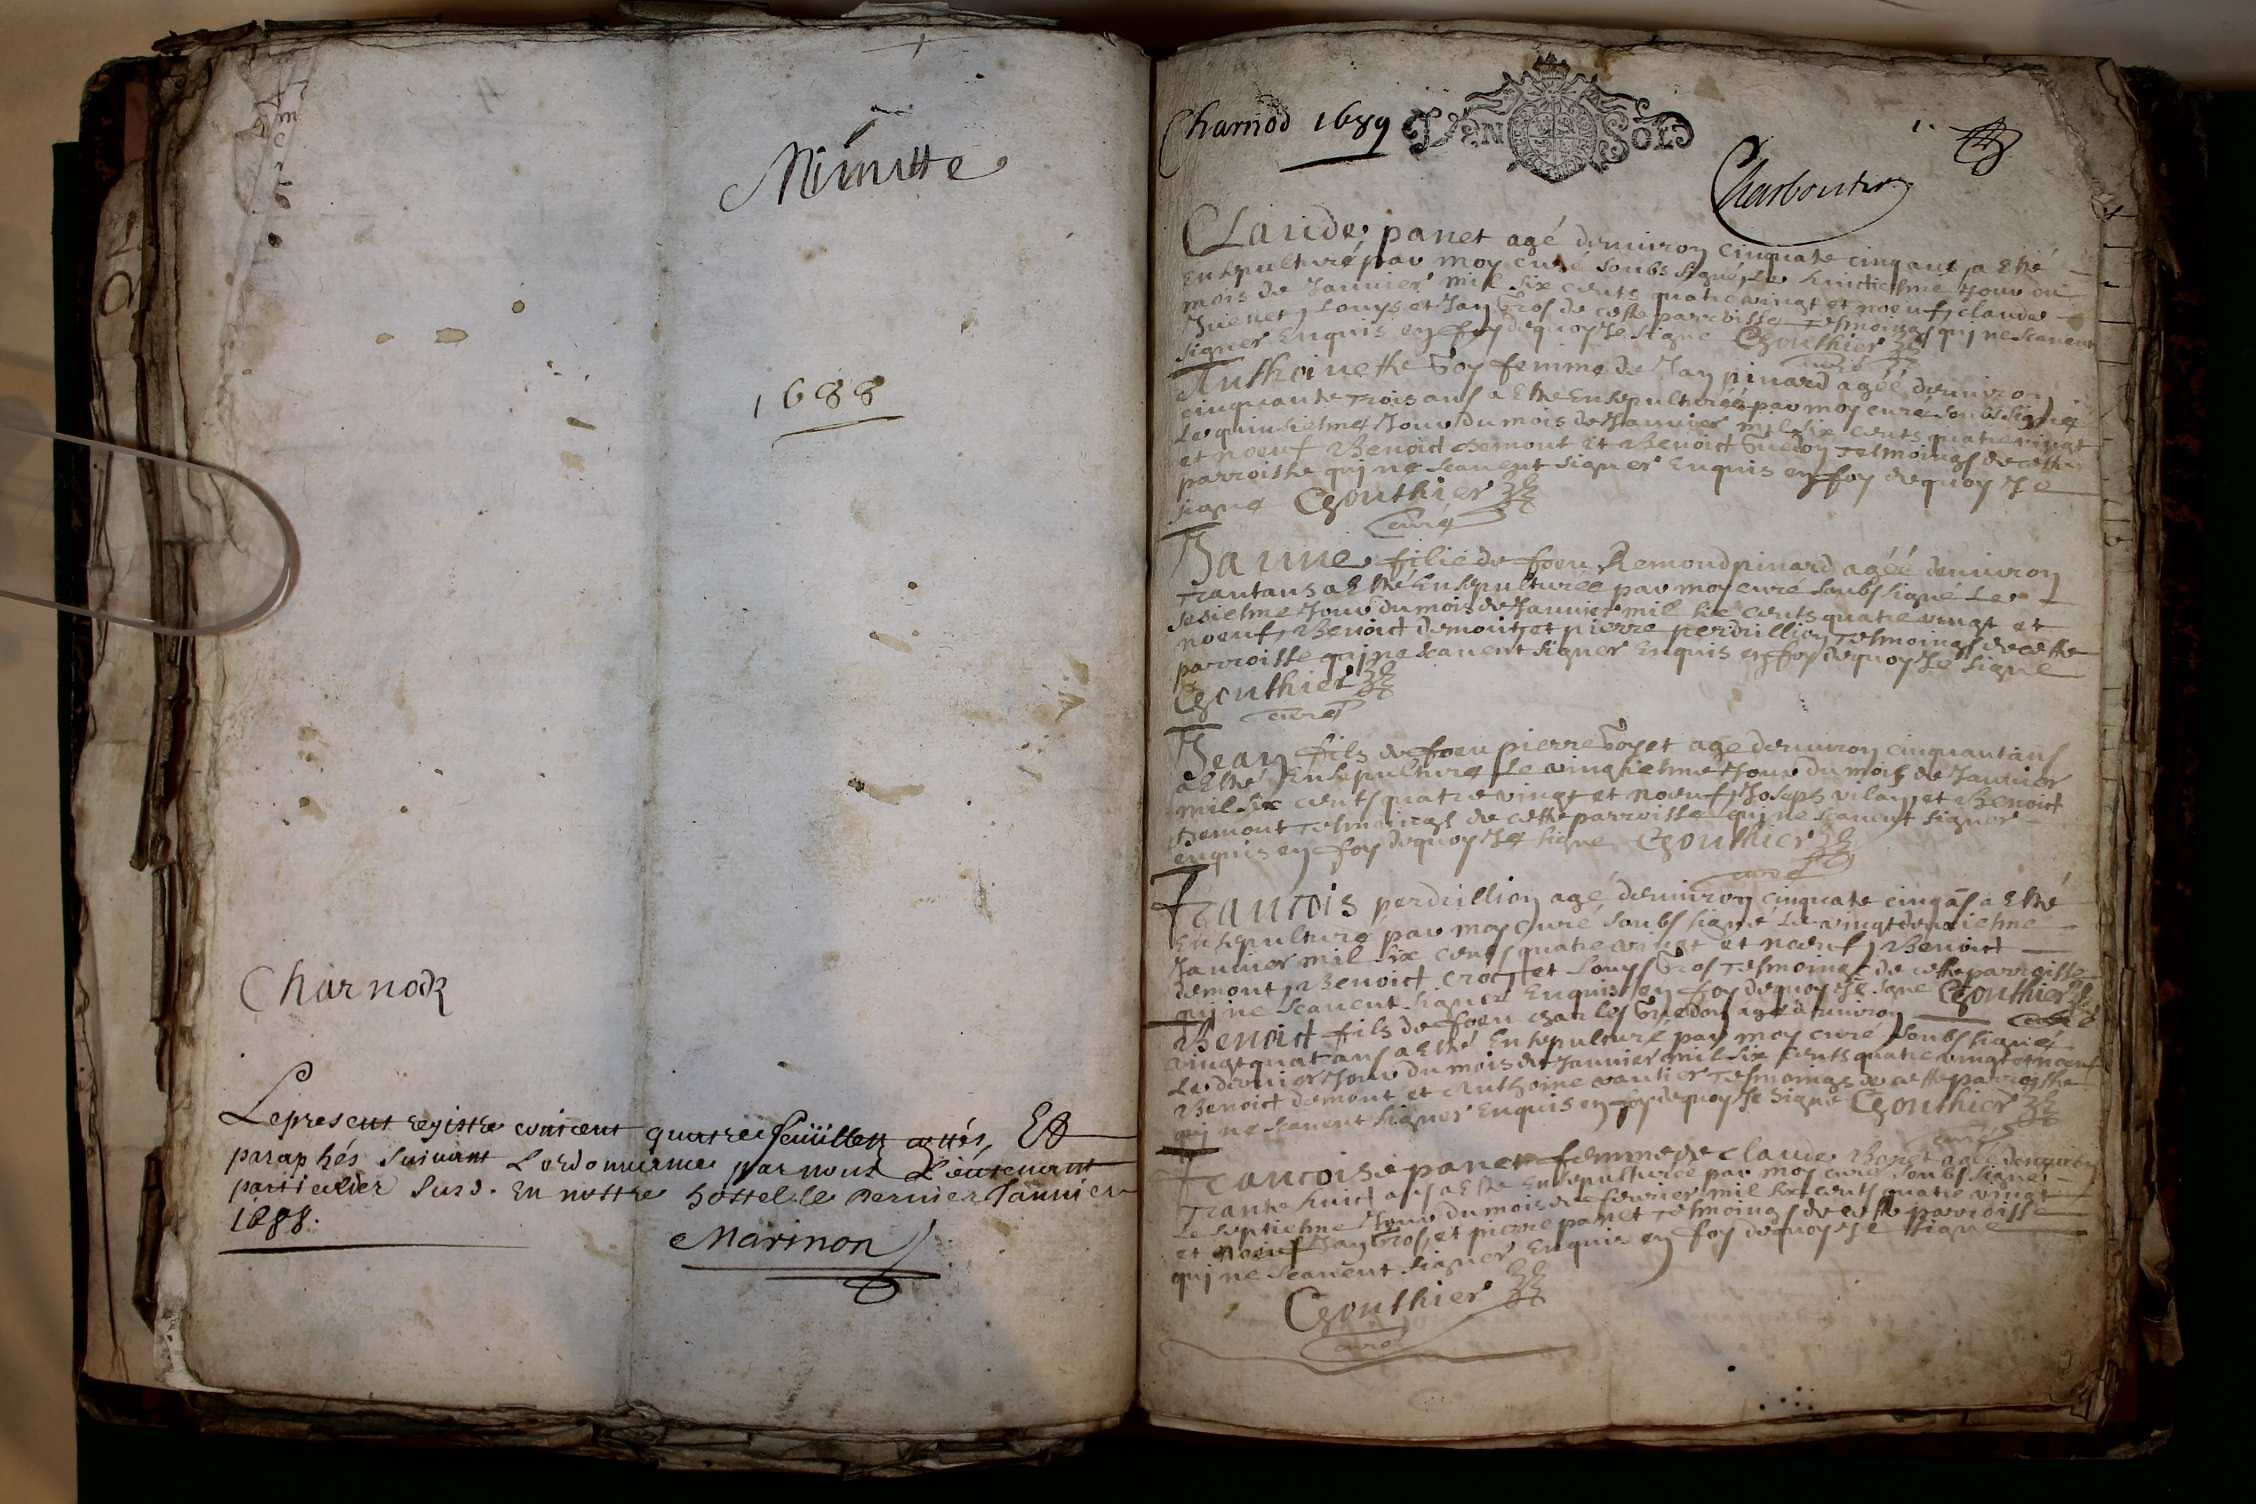 Minutte
1688
Charnod
Le present registre contient quatre feüillets cottés, Et
paraphés suivant L'ordonnance par nous Lieutenant
particulier susd. En nostre hostel le dernier Janvier
1688.
Marinon
Charnod 1689
1.
Charbonier
Claude panet agé denuiron cinquate cinqans, a Esté
Ensepulturé par moy curé soubs signé, Le huictiesme Jour du
mois de Januier mil six cents quatre vingt et noeuf, claude
Juenet, Louys et Jan Gros de cette parroisse Tesmoings qui ne scauent
signer Enquis en foy dequoy Je signe CGouthier
curé
Anthoinette Goy femme de Jan pinard agéé denuiron
cinquante trois ans a Esté Ensepulturéé par moy curé soubs signé
Le quinsiesme Jour du mois de Januier mil six cents quatre vingt
et noeuf Benoict demont et Benoict Guedon Tesmoings de cette
parroisse qui ne scauent signer Enquis en foy dequoy Je
signe CGouthier
curé
Janne fillie de foeu Remond pinard agéé denuiron
trantans a Esté Ensepulturéé par moy curé soubs signé Le
sesiesme Jour du mois de Januier mil six cents quatre vingt et
noeuf, Benoict demont et pierre perdrillion Tesmoings de cette
parroisse qui ne scauent signer Enquis en foy dequoy Je signe
CGouthier
curé
Jean fils de foeu pierre Goyet agé denuiron cinquantans
a Esté Ensepulturé Le vingtiesme Jour du mois de Januier
mil six cents quatre vingt et noeuf, Joseph vilan, et Benoict
demont Tesmoings de cette parroisse qui ne scauent signer
enquis en foy dequoy Je signe CGouthier
curé
Francois perdrillion agé denuiron cinquate cinqās a Esté
Ensepulturé par moy curé soubs signé Le vingtdeuxiesme
Januier mil six cents quatre vingt et noeuf, Benoict
demont, Benoict croc, et Louys Gros Tesmoings de cette parroisse
qui ne scauent signer Enquis en foy dequoy Je signe CGouthier
curé
Benoict fils de foeu charles Guedon agé denuiron
vingtquatrans a Esté Ensepulturé par moy curé soubs signé
Le dernier Jour du mois de Januier mil six cents quatre vingt et noeuf
Benoict demont et Anthoine vautier Tesmoings de cette parroisse
qui ne scauent signer Enquis en foy dequoy Je signe CGouthier
curé
Francoise panet femme de claude Boret agéé denuiron
Trante huict ans a Esté Ensepulturéé par moy curé soubs signé
Le septiesme Jour du mois de feurier mil six cents quatre vingt
et noeuf Jan Gros, et pierre panet Tesmoings de cette parroisse
qui ne scauent signer Enquis en foy dequoy Je signe
CGouthier
curé